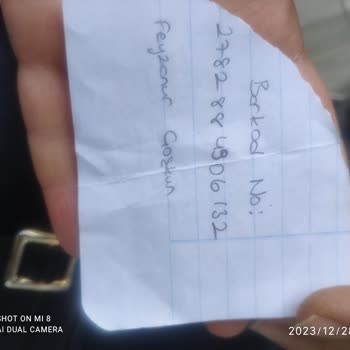 Barkod No:
2782884806132
Feyzanur Coşkun
SHOT ON MI 8
AI DUAL CAMERA
2023/12/28